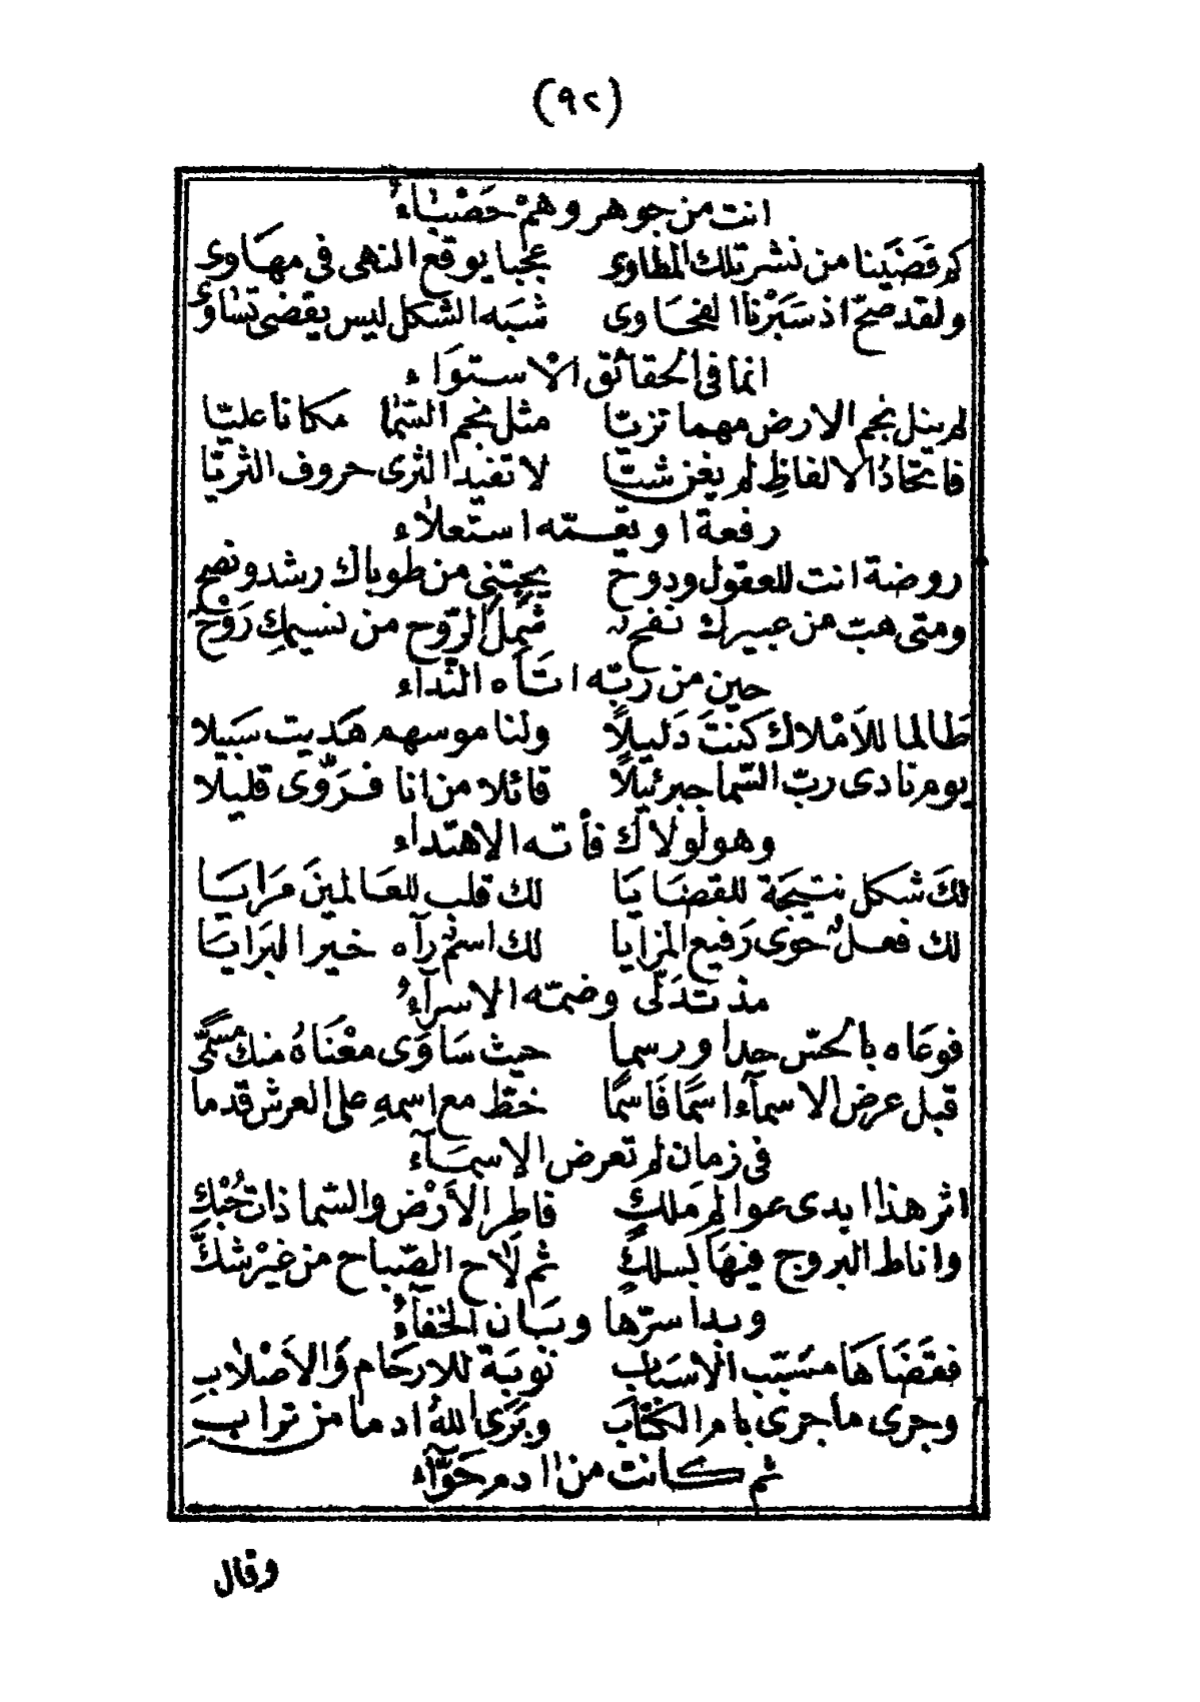 (٩٢)
انت من جوهر وهمْ حَصْبَاءُ
كم قَضَيْنا من نشر تلك المطاوى عجبا يوقع النهى فى مهَاوى
ولقد صحّ اذ سَبَرْنا الفحَاوى شبَه الشكل ليس يقضى تسَاوى
انما فى الحقائق الاستوَاء
لم ينل نجم الارض مهما تزيّا مثل نجم السّما مكانا عليّا
فاتحّاذُ الالفاظِ لم يغن شيّا لا تفيد الثرى حروف الثريّا
رفعة او يعمّه استعلاء
روضة انت للعقول ودوح يجتنى من طوباك رشد ونصح
ومتى هبّ من عبيرك نفحٌ ثمِل الرّوح من نسيمكِ رَوْحٌ
حين من ربّه اتَاه النّداء
طالما للاَمْلاك كنْتَ دَليلاً ولنا موسهم هَديت سَبيلا
يوم نادى ربّ السّما جبرئيلاً قائلا من انا فرَوّى قليلا
وهو لولاك فأته الاهتداء
لكَ شكل نتيجَة للقضَايَا لك قلب للعَالمينَ مرَايَا
لك فعلٌ حوَى رَفيع المزايا لك اسمٌ رآه خير البَرايَا
مذ تدَلّى وضمّه الاسرآءُ
فوعَاه بالحسّ حدا ورسما حيث سَاوَى معْنَاهُ منك مسمَّى
قبل عرض الاسمآء اسمًا فَاسمًا خطّ مع اسمهِ على العرش قدما
فى زمان لم تعرض الاسمَآء
اثر هذا ابدى عوالم مَلكٍ فاطر الاَرْض والسّما ذات حُبْكِ
واناط البروج فيهَا بسلكٍ ثم لَاح الصّباح من غيْر شكَّ
وبدا سرّها وبَان الخفآءُ
فقضَاهَا مسَبّب الاسبَاب نوبَة للارحَام وَالاَصْلابِ
وجرى ما جرى بام الكتَاب وبَرَى اللهُ ادما من ترابِ
ثم كانت من ادم حَوّآء
وقال